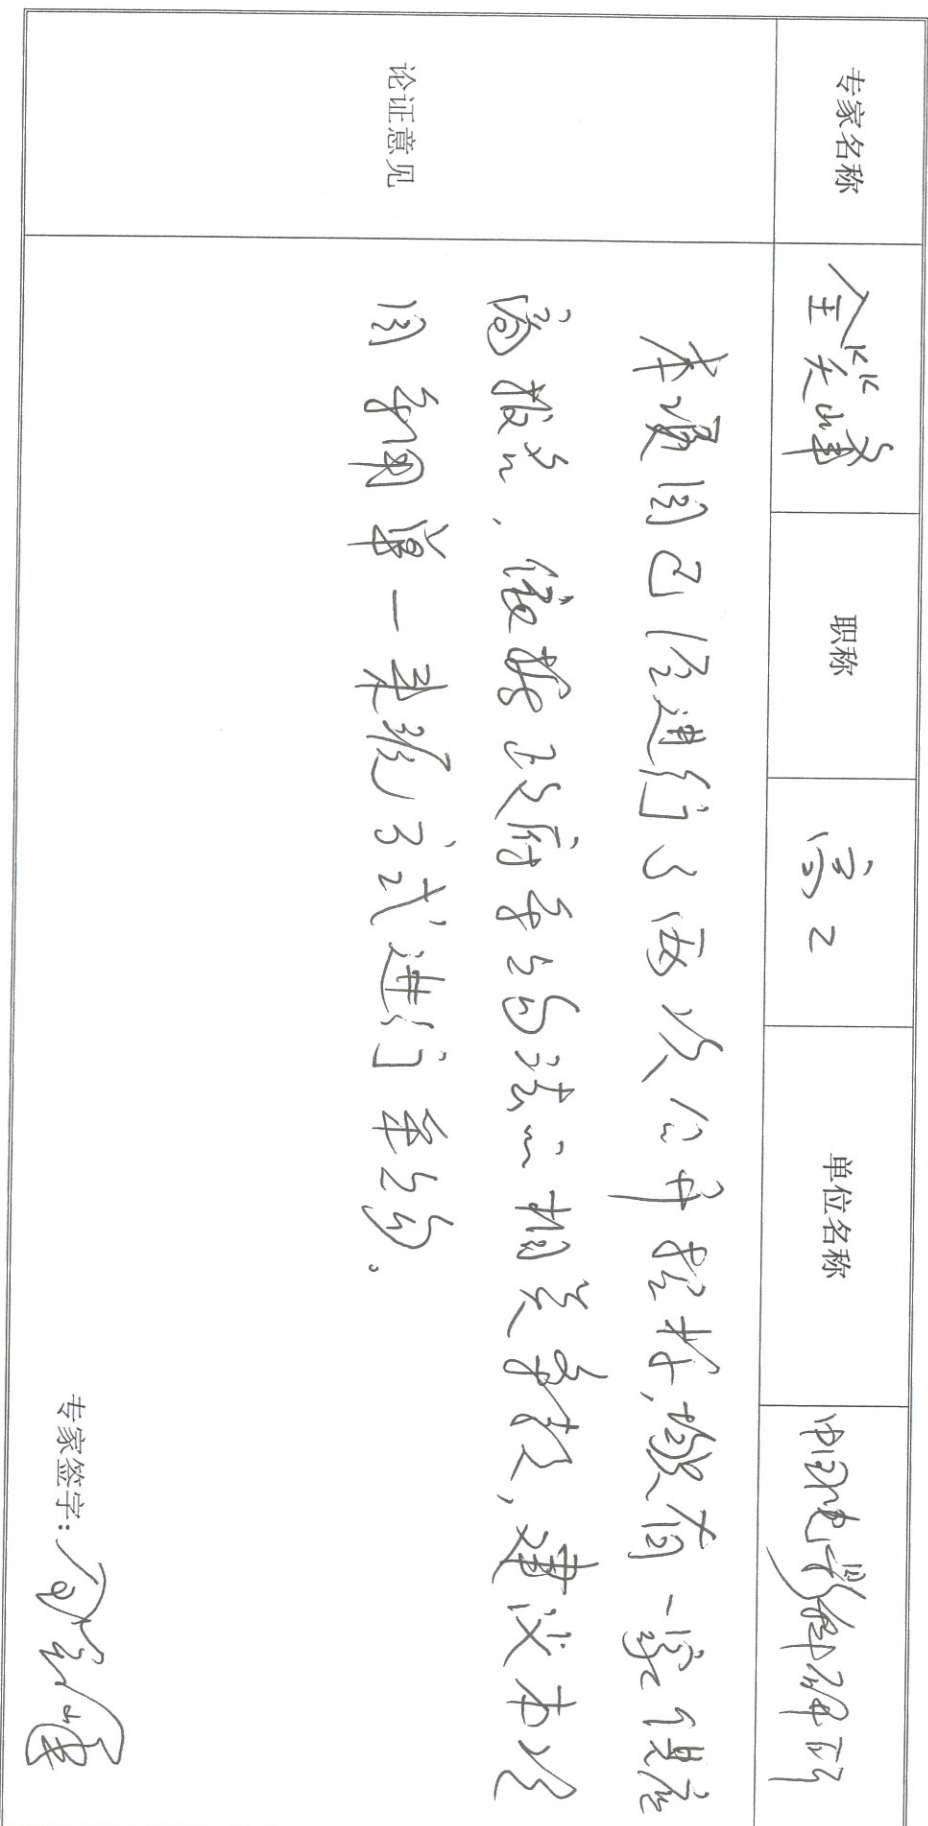 专家名称 全笑峰 职称 高工 单位名称 中国电影科研所
论证意见
本项目已经进行了两次公开招标,均只有一家供应
商报名、依据政府采购法的相关条款,建议本次
目采用单一来源方式进行采购。
专家签字: